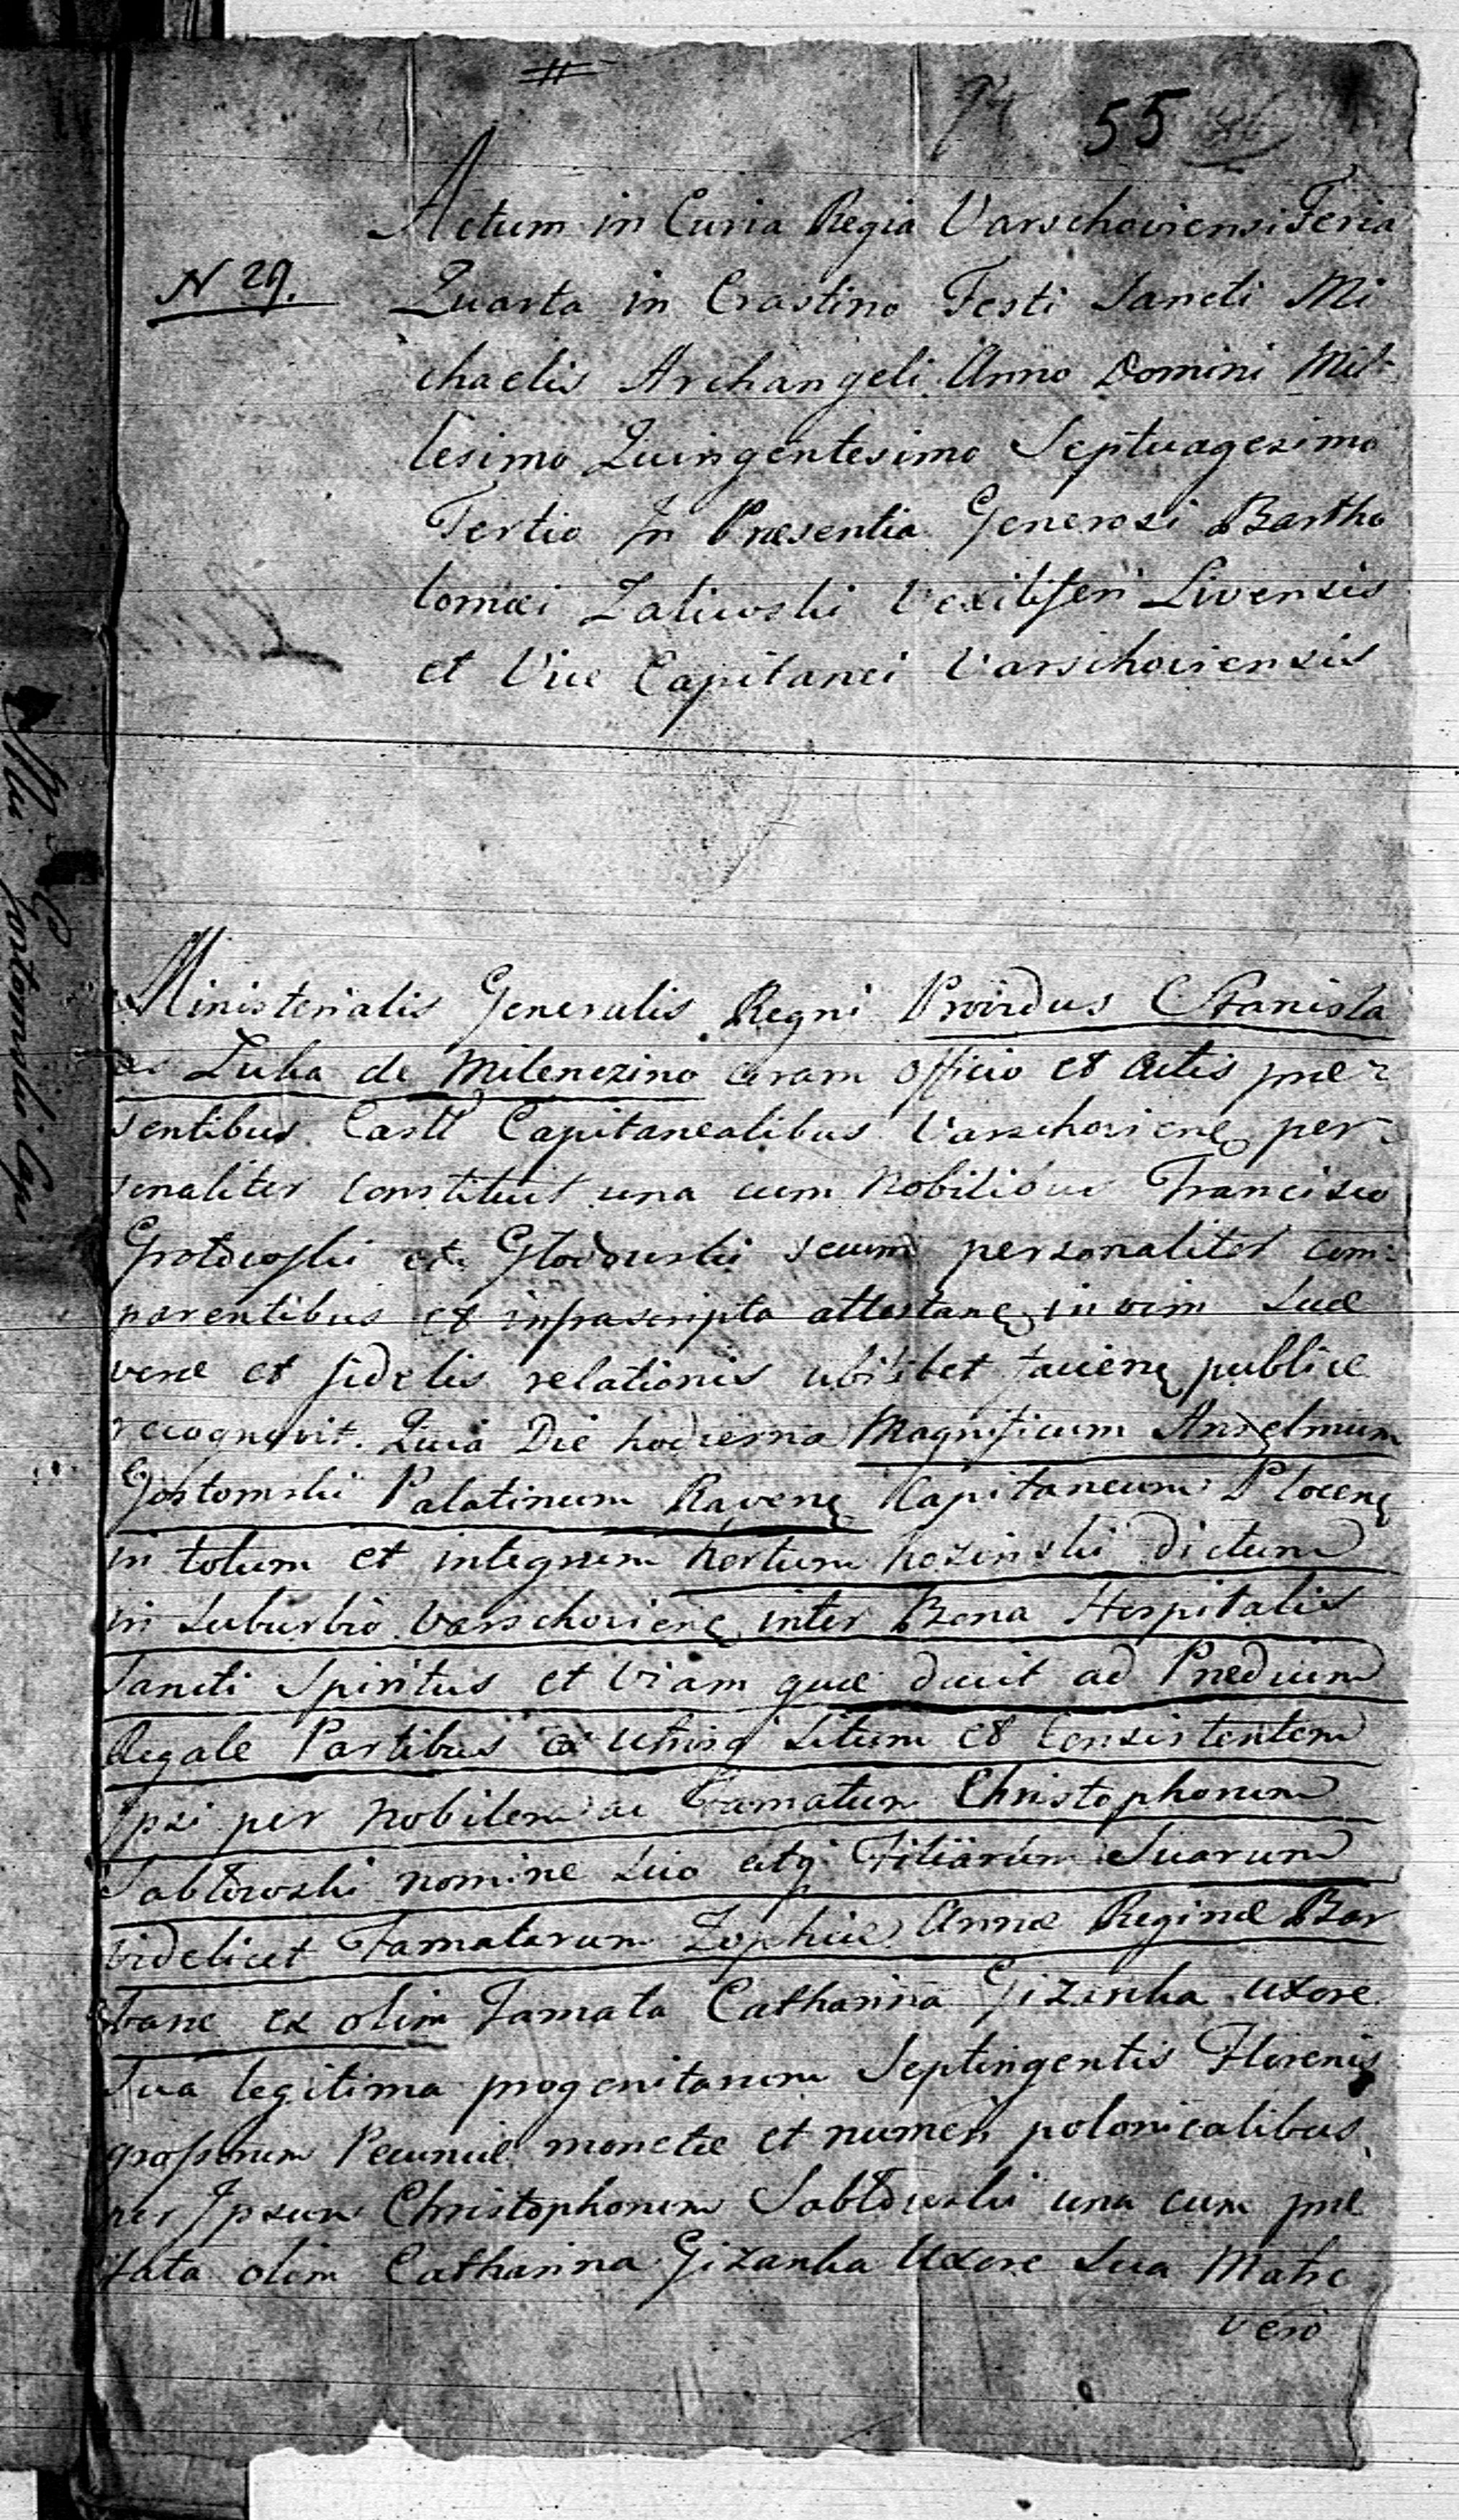 55
Actum in Curia Regia Varschoviensi Feria
N 29.
Quarta in Crastino Festi Sancti Mi
chaelis Archangeli Anno Domini Mil-
lesimo Quingentesimo Septuagesimo
Tertio In Præsentia Generosi Bartho
lomæi Zaliwski Vexiliferi Livensis
et Vice Capitanei Varschoviensis
Ministerialis Generalis Regni Providus Stanisla
us Luba de Milenczino coram officio et Actis præ-
sentibus Castr Capitanealibus Varschovienę per-
sonaliter constitutus una cum Nobilibus Francisco
et secum personaliter com-
parentibus et infrascripta attestanę in vim suæ
veræ et fidelis relationis ubilibet facienę publice
recognovit. Quia Die hodierna Magnificum Anselmum
Gostomski Palatinum Ravenę Capitaneum Plocenę
in totum et integrum hortum dictum
in suburbio Varschovienę inter Bona Hospitalis
Sancti Spiritus et Viam quæ ducit ad Prædium
Regale Partibus ex utrinq situm et Consistentem
Ipsi per Nobilem ac Famatum Christophorum
Jabłowski nomine suo atq Filiarum Suarum
videlicet Famatarum Zophiæ Annæ Reginæ Bar
baræ ex olim Famata Catharina Gizanka uxore
sua legitima progenitarum Septingentis Florenis
grossorum Pecuniæ monetæ et numeri polonicalibus
per Ipsum Christophorum Jabłowski una cum præ
fata olim Catharina Gizanka Uxore sua Matre
vero